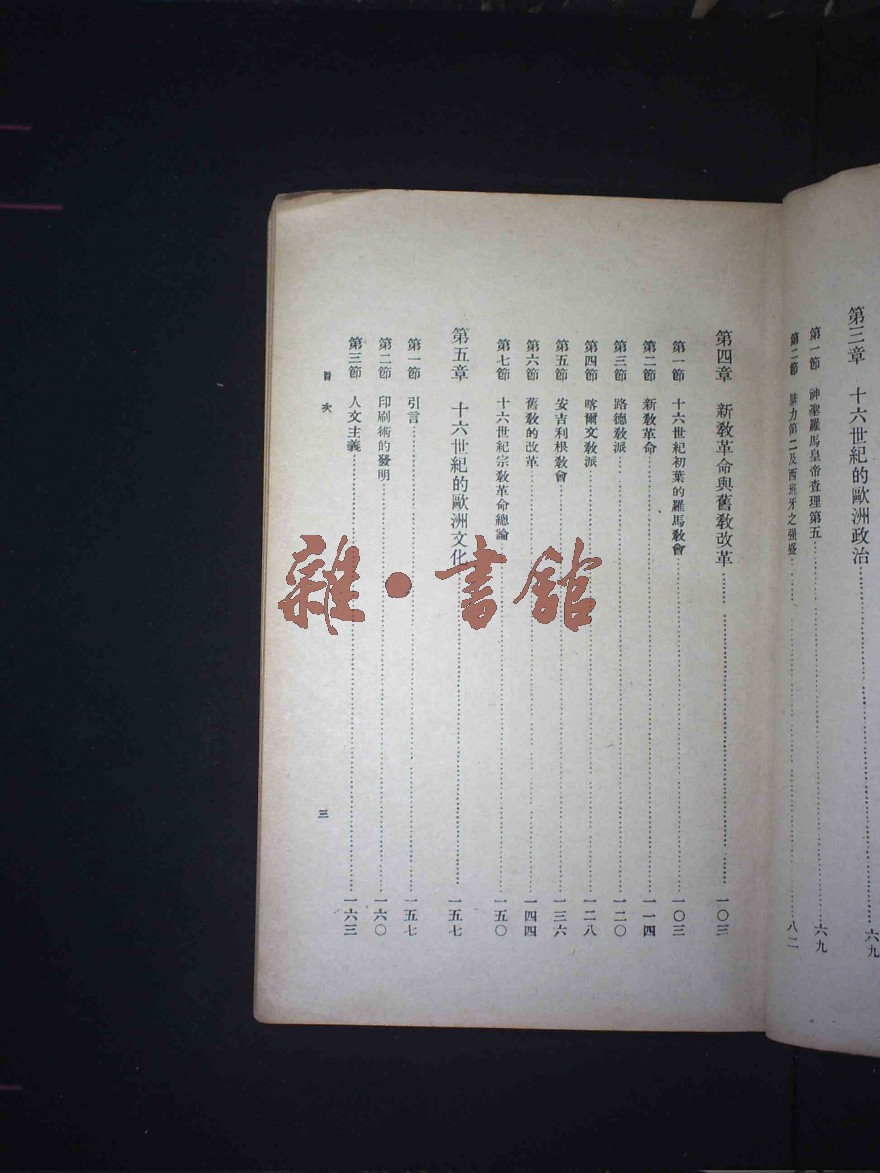 第三章　十六世紀的歐洲政治…………六九
第一節　神聖羅馬皇帝查理第五…………六九
第二節　腓力第二及西班牙之强盛…………八二
第四章　新敎革命與舊敎改革…………一〇三
第一節　十六世紀初葉的羅馬敎會…………一〇三
第二節　新敎革命…………一一四
第三節　路德敎派…………一二〇
第四節　喀爾文敎派…………一二八
第五節　安吉利根敎會…………一三六
第六節　舊敎的改革…………一四四
第七節　十六世紀宗敎革命總論…………一五〇
第五章　十六世紀的歐洲文化…………一五七
第一節　引言…………一五七
第二節　印刷術的發明…………一六〇
第三節　人文主義…………一六三
目次
三
雜·書館